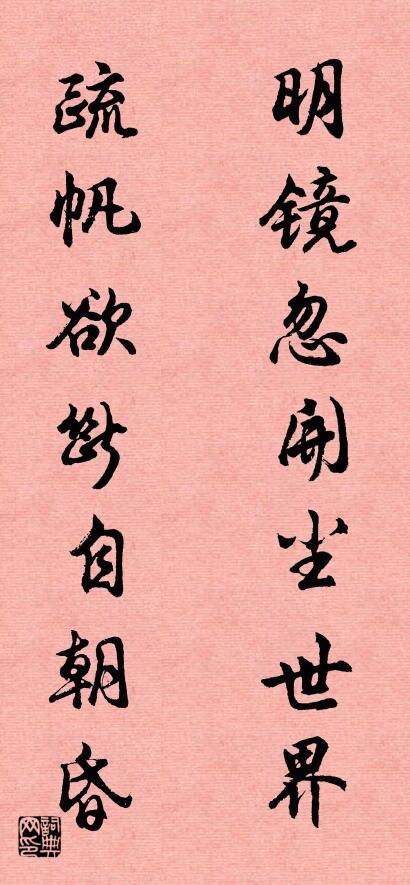 明镜忽开尘世界
疏帆欲断自朝昏
詞典网印